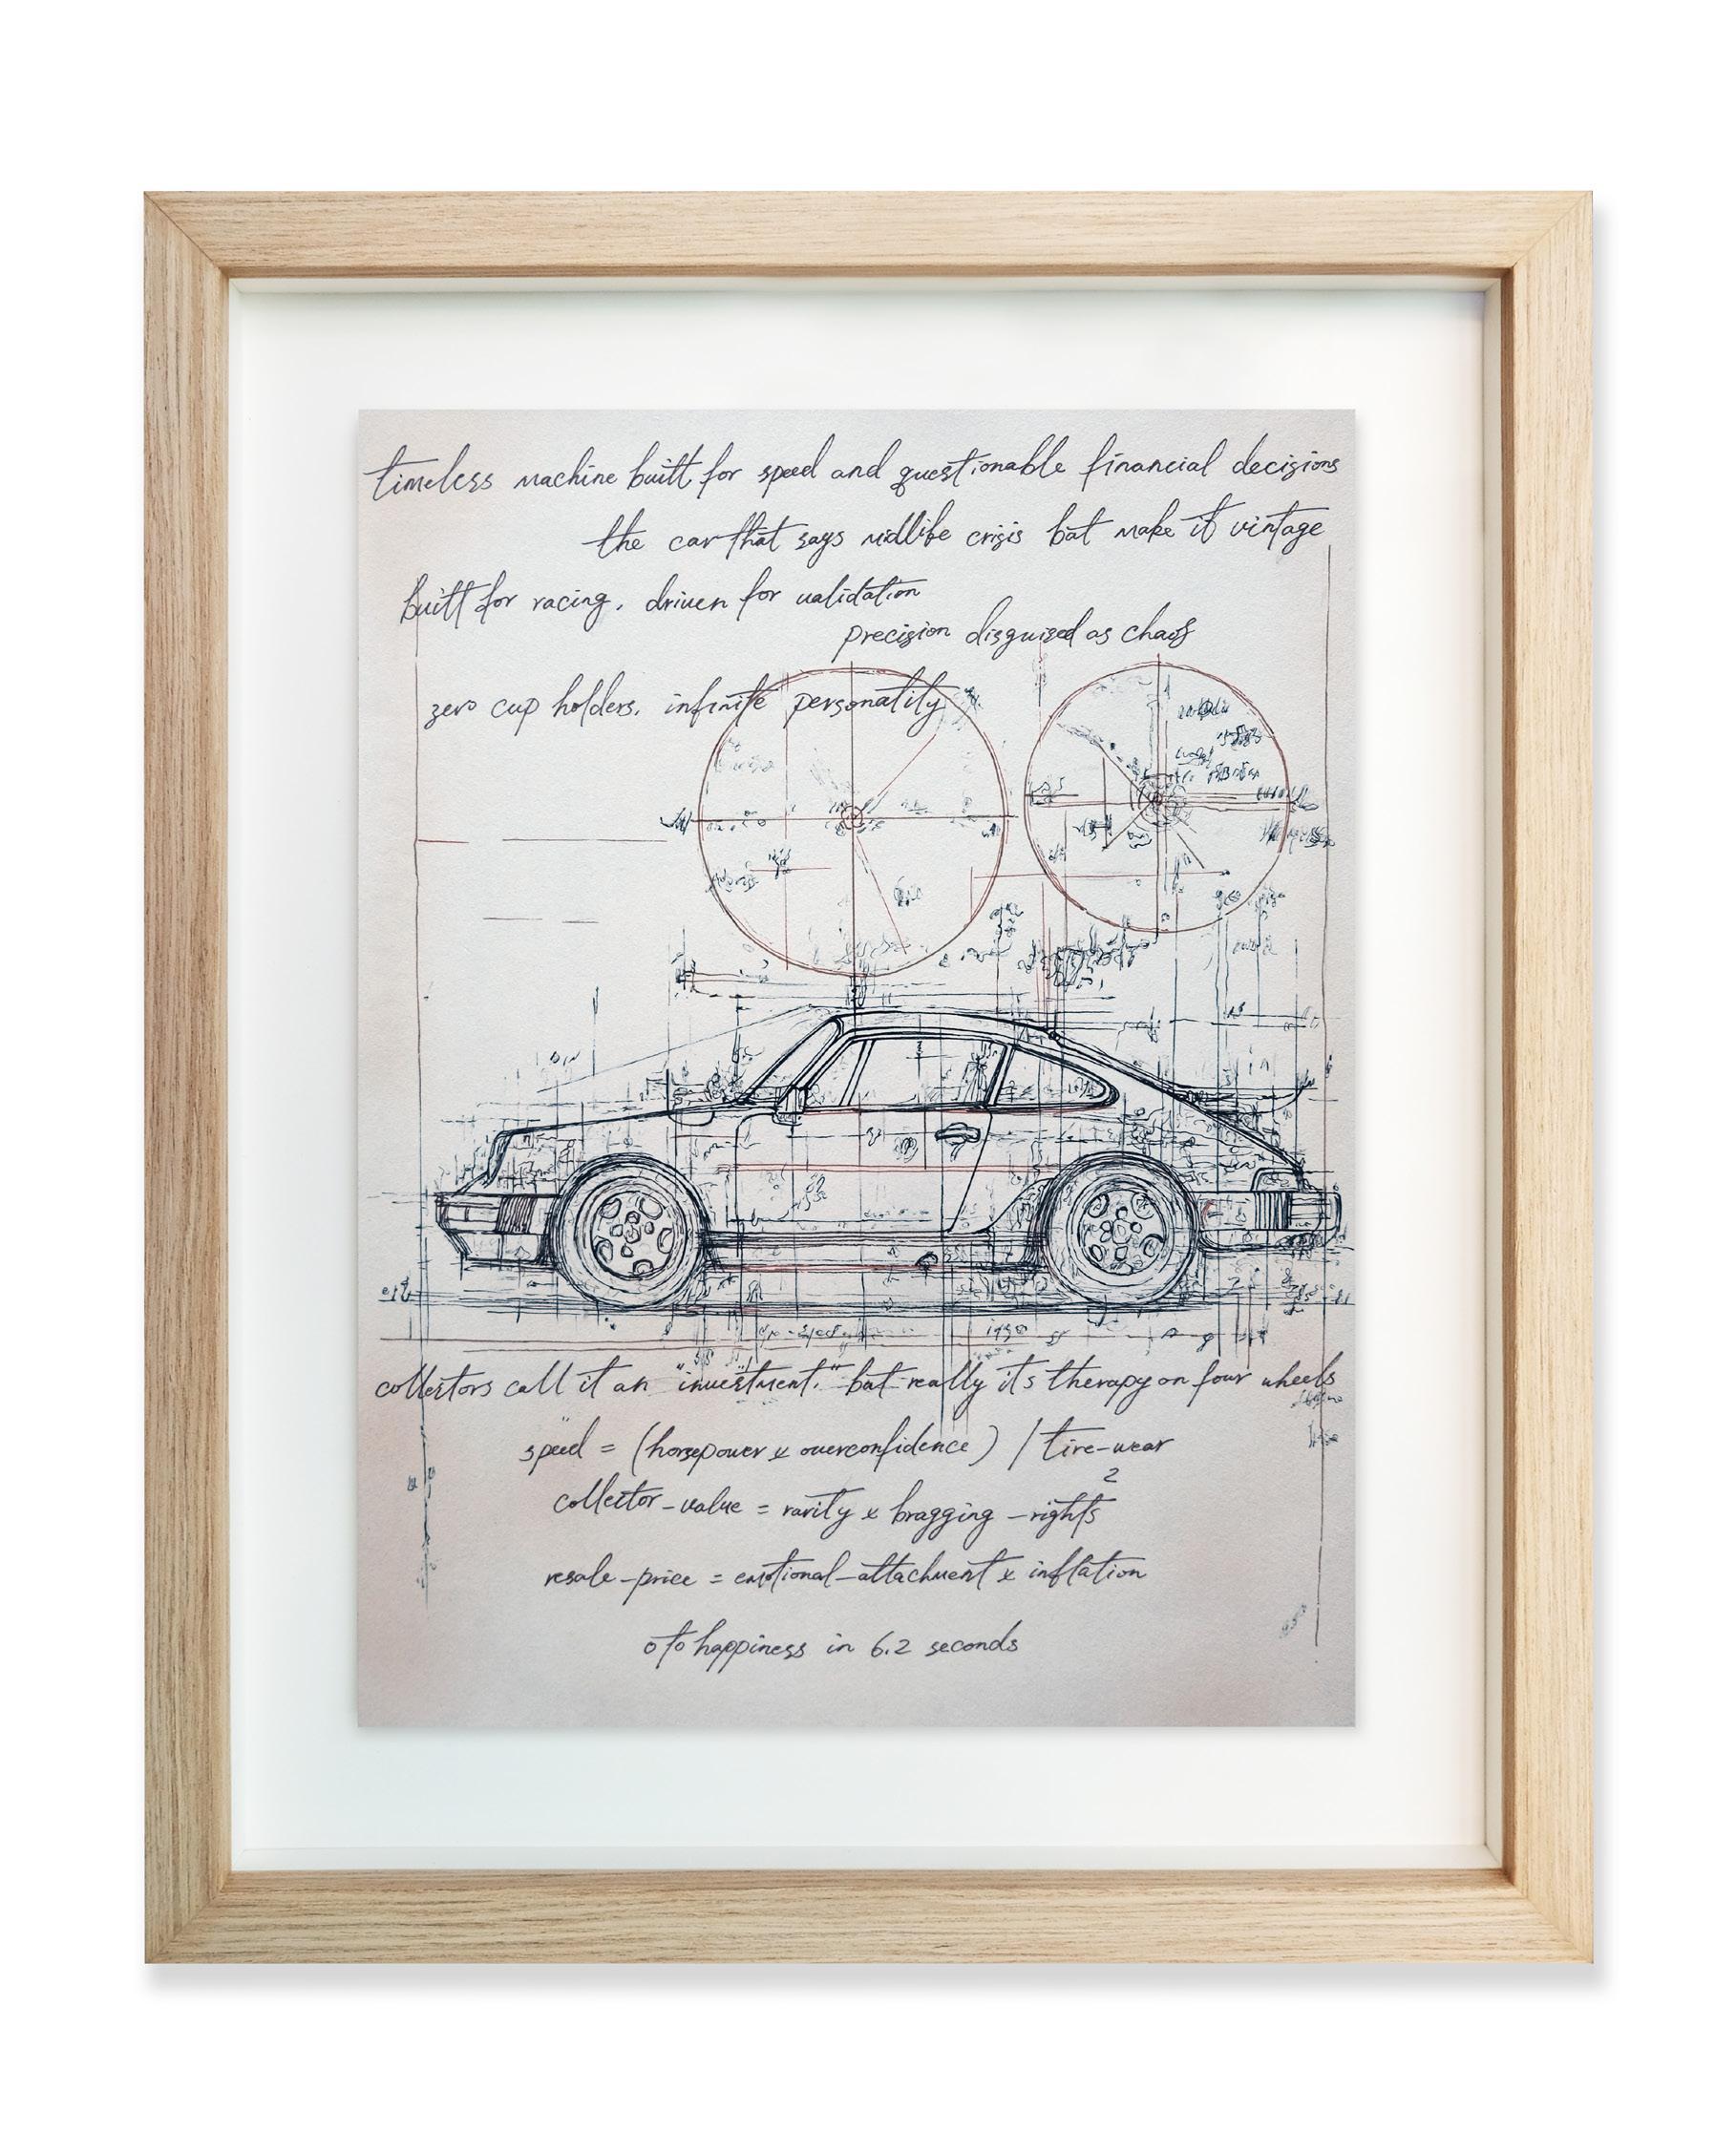 timeless machine built for speed and questionable financial decisions
the car that says midlife crisis but make it vintage
built for racing, driven for validation
precision disguised as chaos
zero cup holders, infinite personality
collectors call it an "investment," but really it's therapy on four wheels
speed = (horsepower x overconfidence) / tire-wear
collector-value = rarity x bragging-rights²
resale-price = emotional-attachment x inflation
0 to happiness in 6.2 seconds